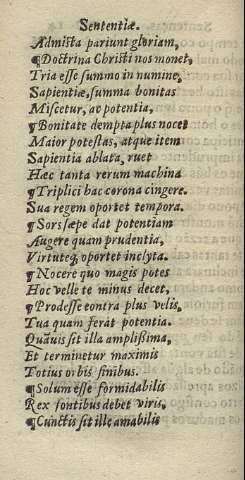 Sententiæ.
Admista pariunt gloriam,
¶Doctrina Christi nos monet,
Tria esse summo in numine,
Sapientiæ, summa bonitas
Miscetur, ac potentia,
¶Bonitate dempta plus nocet
Maior potestas, atque item
Sapientia ablata, ruet
Hæc tanta rerum machina
¶Triplici hac corona cingere.
Sua regem oportet tempora.
¶Sors sæpe dat potentiam
Augere quam prudentia,
Virtuteq; oportet inclyta.
¶Nocere quo magis potes
Hoc velle te minus decet,
¶Prodesse contra plus velis,
Tua quam ferat potentia.
Quãuis sit illa amplißima,
Et terminetur maximis
Totius orbis finibus.
¶Solum esse formidabilis
Rex sontibus debet viris,
¶Cunctis sit ille amabilis